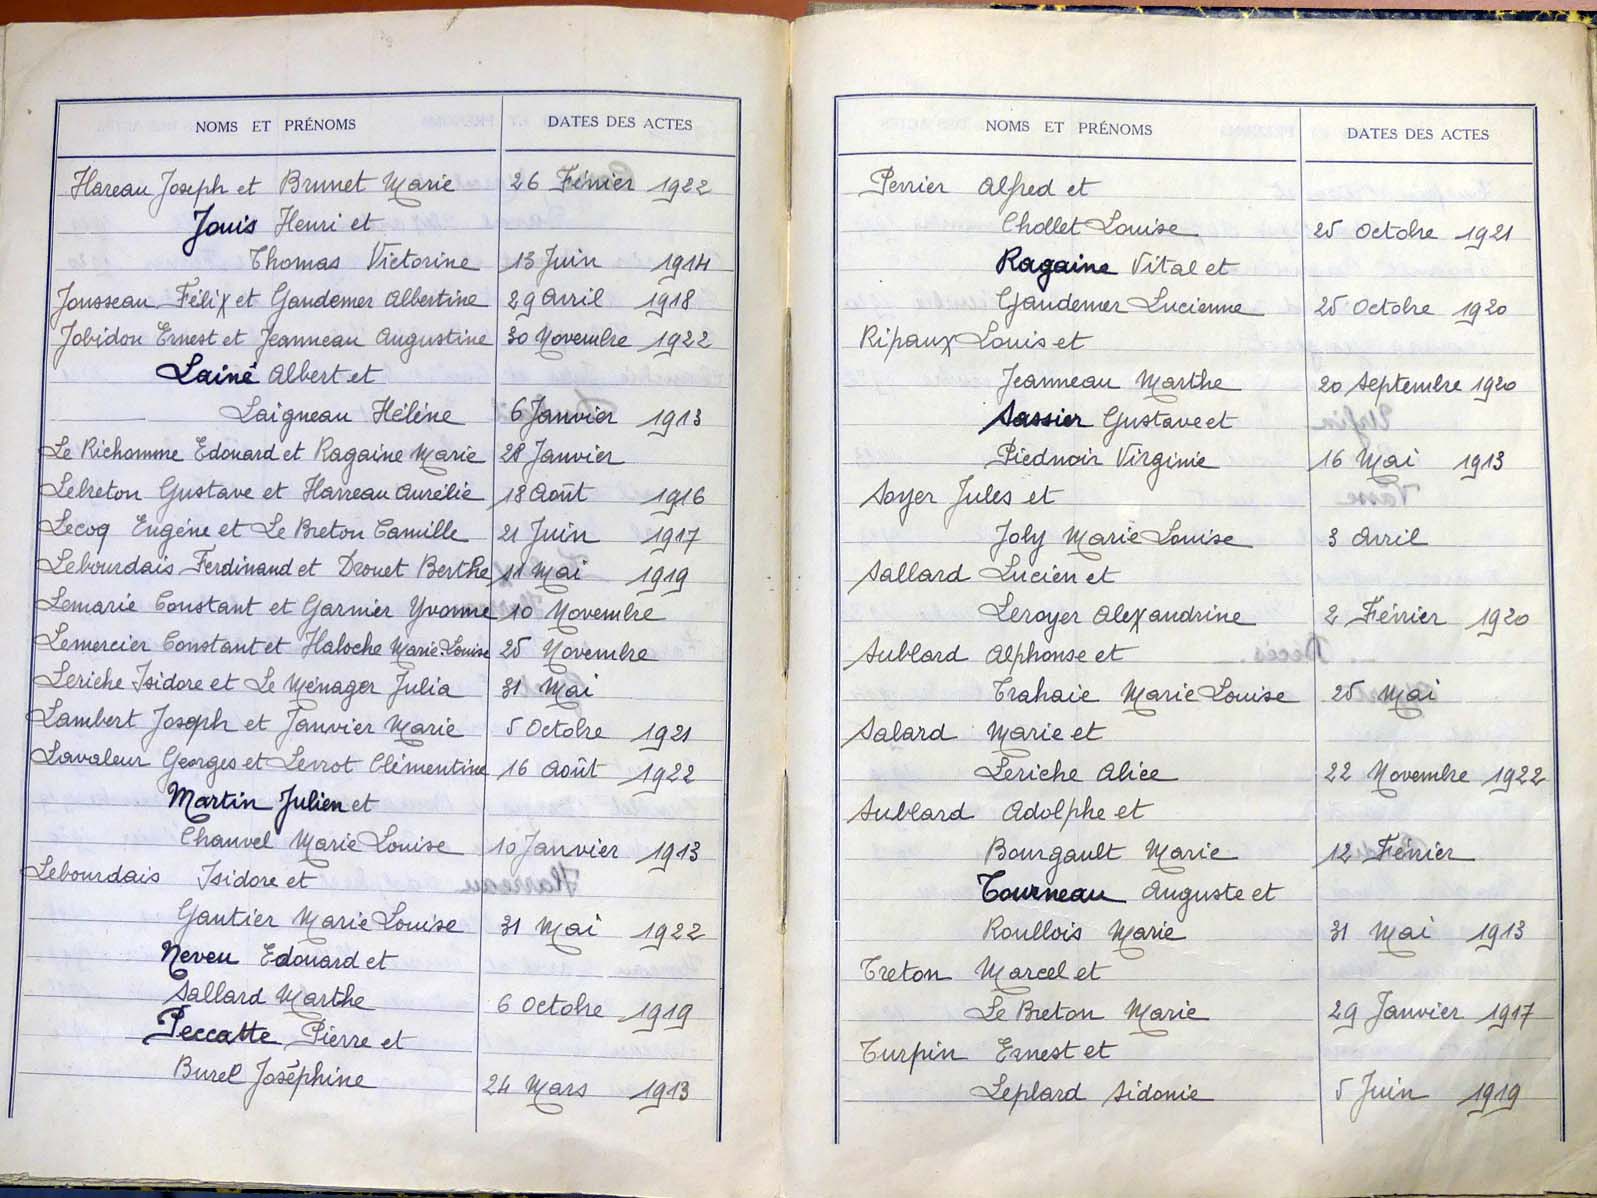 NOMS ET PRÉNOMS DATES DES ACTES
Hareau Joseph et Brunet Marie 26 Février 1922
Jouis Henri et
Thomas Victorine 13 Juin 1914
Jousseau Félix et Gaudemer Albertine 29 Avril 1918
Jobidon Ernest et Jeanneau Augustine 30 Novembre 1922
Lainé Albert et
Laigneau Hélène 6 Janvier 1913
Le Richomme Edouard et Ragaine Marie 28 Janvier
Lebreton Gustave et Harreau Aurélie 18 Août 1916
Lecoq Eugène et Le Breton Camille 21 Juin 1917
Lebourdais Ferdinand et Drouet Berthe 11 Mai 1919
Lemarie Constant et Garnier Yvonne 10 Novembre
Lemercier Constant et Haloche Marie Louise 25 Novembre
Leriche Isidore et Le Ménager Julia 31 Mai
Lambert Joseph et Janvier Marie 5 Octobre 1921
Lavaleur Georges et Levrot Clémentine 16 Août 1922
Martin Julien et
Chauvel Marie Louise 10 Janvier 1913
Lebourdais Isidore et
Gautier Marie Louise 31 Mai 1922
Neveu Edouard et
Sallard Marthe 6 Octobre 1919
Peccatte Pierre et
Burel Joséphine 24 Mars 1913
NOMS ET PRÉNOMS DATES DES ACTES
Perrier Alfred et
Chollet Louise 25 Octobre 1921
Ragaine Vital et
Gaudemer Lucienne 25 Octobre 1920
Ripaux Louis et
Jeanneau Marthe 20 Septembre 1920
Sassier Gustave et
Piednoir Virginie 16 Mai 1913
Soyer Jules et
Joly Marie Louise 3 Avril
Sallard Lucien et
Leroyer Alexandrine 2 Février 1920
Sublard Alphonse et
Trahaie Marie Louise 25 Mai
Salard Marie et
Leriche Alice 22 Novembre 1922
Sublard Adolphe et
Bourgault Marie 12 Février
Tourneau Auguste et
Roullois Marie 31 Mai 1913
Treton Marcel et
Le Breton Marie 29 Janvier 1917
Turpin Ernest et
Leplard Sidonie 5 Juin 1919